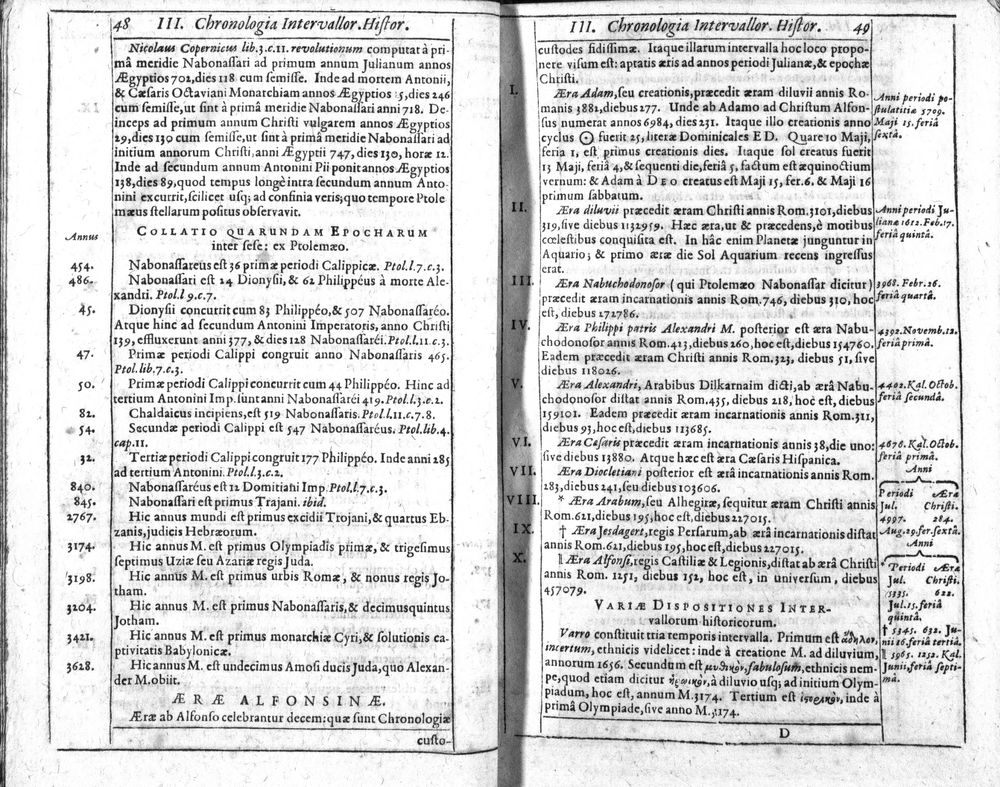 48 III. Chronologia Intervallor. Histor.
Nicolaus Copernicus lib.3.c.11. revolutionum computat à pri-
mâ meridie Nabonassari ad primum annum Julianum annos
Ægyptios 702, dies 118 cum semisse. Inde ad mortem Antonii,
& Cæsaris Octaviani Monarchiam annos Ægyptios 15, dies 246
cum semisse, ut sint à primâ meridie Nabonassari anni 718. De-
inceps ad primum annum Christi vulgarem annos Ægyptios
29, dies 130 cum semisse, ut sint à primâ meridie Nabonassari ad
initium annorum Christi, anni Ægyptii 747, dies 130, horæ 12.
Inde ad secundum annum Antonini Pii ponit annos Ægyptios
138, dies 89, quod tempus longè intra secundum annum Anto-
nini excurrit, scilicet usq; ad confinia veris; quo tempore Ptole
mæus stellarum positus observavit.
COLLATIO QUARUNDAM EPOCHARUM
inter sese; ex Ptolemæo.
Annus
454. Nabonassareus est 36 primæ periodi Calippicæ. Ptol.l.7.c.3.
486. Nabonassari est 24 Dionysii, & 62 Philippéus à morte Ale-
xandri. Ptol.l.9.c.7.
45. Dionysii concurrit cum 83 Philippéo, & 507 Nabonassaréo.
Atque hinc ad secundum Antonini Imperatoris, anno Christi
139, effluxerunt anni 377, & dies 128 Nabonassaréi. Ptol.l.11.c.3.
47. Primæ periodi Calippi congruit anno Nabonassaris 465.
Ptol.lib.7.c.3.
50. Primæ periodi Calippi concurrit cum 44 Philippéo. Hinc ad
tertium Antonini Imp. sunt anni Nabonassaréi 419. Ptol.l.3.c.2.
82. Chaldaicus incipiens, est 519 Nabonassaris. Ptol.l.11.c.7.8.
54. Secundæ periodi Calippi est 547 Nabonassaréus. Ptol.lib.4.
cap.11.
32. Tertiæ periodi Calippi congruit 177 Philippéo. Inde anni 285
ad tertium Antonini. Ptol.l.3.c.2.
840. Nabonassaréus est 12 Domitiani Imp. Ptol.l.7.c.3.
845. Nabonassari est primus Trajani. ibid.
2767. Hic annus mundi est primus excidii Trojani, & quartus Eb-
zanis, judicis Hebræorum.
3174. Hic annus M. est primus Olympiadis primæ, & trigesimus
septimus Uziæ seu Azariæ regis Juda.
3198. Hic annus M. est primus urbis Romæ, & nonus regis Jo-
tham.
3204. Hic annus M. est primus Nabonassaris, & decimusquintus
Jotham.
3421. Hic annus M. est primus monarchiæ Cyri, & solutionis ca-
ptivitatis Babylonicæ.
3628. Hic annus M. est undecimus Amosi ducis Juda, quo Alexan-
der M. obiit.
ÆRÆ ALFONSINÆ.
Æræ ab Alfonso celebrantur decem: quæ sunt Chronologiæ
custo-
III. Chronologia Intervallor. Histor. 49
custodes fidissimæ. Itaque illarum intervalla hoc loco propo-
nere visum est: aptatis æris ad annos periodi Julianæ, & epochæ
Christi.
I. Æra Adam, seu creationis, præcedit æram diluvii annis Ro-
manis 3882, diebus 277. Unde ab Adamo ad Christum Alfon-
sus numerat annos 6984, dies 231. Itaque illo creationis anno
cyclus ☉ fuerit 25, literæ Dominicales E D. Quare 10 Maji,
feria 1, est primus creationis dies. Itaque sol creatus fuerit
13 Maji, feriâ 4, & sequenti die, feriâ 5, factum est æquinoctium
vernum: & Adam à DEO creatus est Maji 15, fer. 6, & Maji 16
primum sabbatum.
Anni periodi po-
stulatitiæ 5709.
Maji 15. feriâ
sextâ.
II. Æra diluvii præcedit æram Christi annis Rom. 3101, diebus
319, sive diebus 1132959. Hæc æra, ut & præcedens, è motibus
cœlestibus conquisita est. In hâc enim Planetæ junguntur in
Aquario; & primo æræ die Sol Aquarium recens ingressus
erat.
Anni periodi Ju-
lianæ 1612. Feb. 17.
feriâ quintâ.
III. Æra Nabuchodonosor (qui Ptolemæo Nabonassar dicitur)
præcedit æram incarnationis annis Rom. 746, diebus 310, hoc
est, diebus 272786.
3968. Febr. 26.
feriâ quartâ.
IV. Æra Philippi patris Alexandri M. posterior est æra Nabu-
chodonosor annis Rom. 423, diebus 260, hoc est, diebus 154760.
Eadem præcedit æram Christi annis Rom. 323, diebus 51, sive
diebus 118026.
4392. Novemb. 12.
feriâ primâ.
V. Æra Alexandri, Arabibus Dilkarnaim dicti, ab ærâ Nabu-
chodonosor distat annis Rom. 435, diebus 218, hoc est, diebus
159101. Eadem præcedit æram incarnationis annis Rom. 311,
diebus 93, hoc est, diebus 113685.
4402. Kal. Octob.
feriâ secundâ.
VI. Æra Cæsaris præcedit æram incarnationis annis 38, die uno:
sive diebus 13880. Atque hæc est æra Cæsaris Hispanica.
4676. Kal. Octob.
feriâ primâ.
VII. Æra Diocletiani posterior est ærâ incarnationis annis Rom.
283, diebus 241, seu diebus 103606.
Anni
Periodi Æræ
Jul. Christi.
4997. 284.
Aug. 29. fer. sextâ.
VIII. * Æra Arabum, seu Alhegiræ, sequitur æram Christi annis
Rom. 621, diebus 195, hoc est, diebus 227015.
IX. † Æra Jesdagert, regis Persarum, ab ærâ incarnationis distat
annis Rom. 621, diebus 195, hoc est, diebus 227015.
X. ‖ Æra Alfonsi, regis Castiliæ & Legionis, distat ab ærâ Christi
annis Rom. 1251, diebus 152, hoc est, in universum, diebus
457079.
Anni
* Periodi Æræ
Jul. Christi.
5335. 622.
Jul. 15. feriâ
quintâ.
† 5345. 632. Ju-
nii 16. feriâ tertiâ.
‖ 5965. 1252. Kal.
Junii, feriâ septi-
mâ.
VARIÆ DISPOSITIONES INTER-
vallorum historicorum.
Varro constituit tria temporis intervalla. Primum est ἄδηλον,
incertum, ethnicis videlicet: inde à creatione M. ad diluvium,
annorum 1656. Secundum est μυθικὸν, fabulosum, ethnicis nem-
pe, quod etiam dicitur ἡρωικὸν, à diluvio usq; ad initium Olym-
piadum, hoc est, annum M. 3174. Tertium est ἱστορικὸν, inde à
primâ Olympiade, sive anno M. 3174.
D